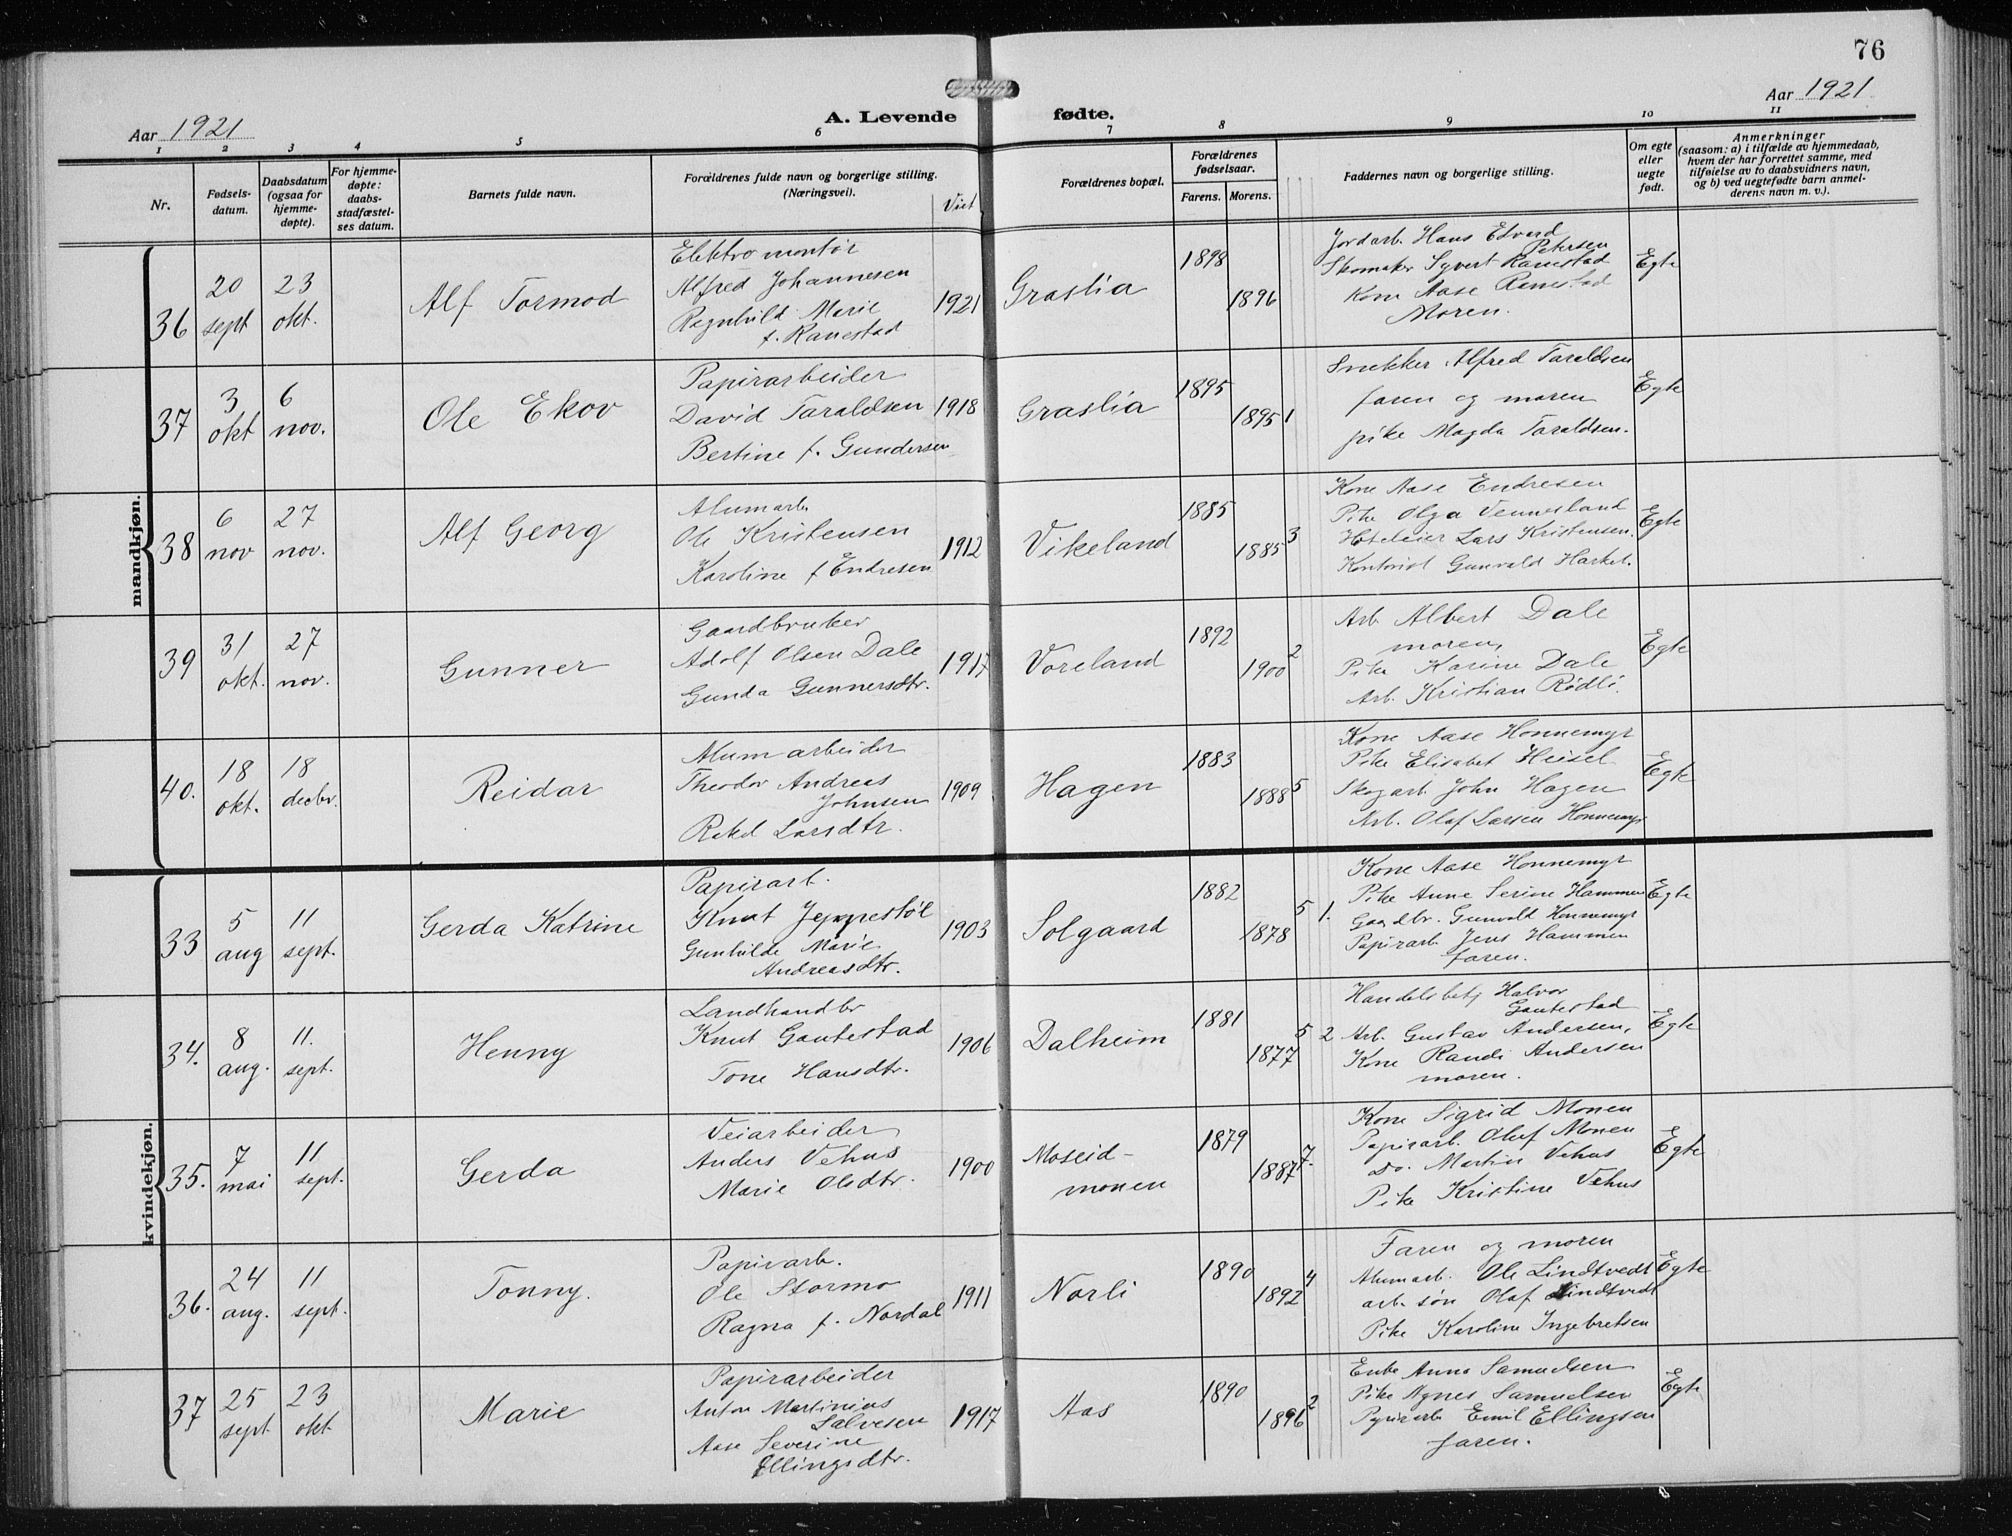 76
Aar 1921
A. Levende fødte.
Aar 1921
1 2 3 4 5 6 7 8 9 10 11
Nr.
Fødsels-
datum.
Daabsdatum
(ogsaa for
hjemme-
døpte).
For hjemme-
døpte:
daabs-
stadfæstel-
ses datum.
Barnets fulde navn.
Forældrenes fulde navn og borgerlige stilling.
(Næringsvei).
Viet
Forældrenes bopæl.
Forældrenes
fødselsaar.
Farens. Morens.
Faddernes navn og borgerlige stilling.
Om egte
eller
uegte
født.
Anmerkninger
(saasom: a) i tilfælde av hjemmedaab,
hvem der har forrettet samme, med
tilføielse av to daabsvidners navn,
og b) ved uegtefødte barn anmel-
derens navn m. v.).
mandkjøn.
36
20
sept
23
okt.
Alf Tormod
Elektromontør
Alfred Johannesen
Ragnhild Marie
f. Ranestad
1921
Graslia
1898
1896
Jordarb. Hans Edvard
Petersen
Skomaker Syvert Ranestad
Kone Aase Ranestad
Moren.
Egte
37
3
okt
6
nov.
Ole Ekov
Papirarbeider
David Taraldsen
Bertine f. Gundersen
1918
Graslia
1895
1895 1
Snekker Alfred Taraldsen
faren og moren
pike Magda Taraldsen.
Egte
38
6
nov
27
nov.
Alf Georg
Alumarb
Ole Kristensen
Karoline f Endresen
1912
Vikeland
1885
1885 3
Kone Aase Endresen
Pike Olga Vennesland
Hoteleier Lars Kristensen.
Kontorist Gunvald Harket.
Egte
39
31
okt.
27
nov.
Gunner
Gaardbruker
Adolf Olsen Dale
Gunda Gunnersdtr.
1917
Voreland
1892
1900 2
Arb Albert Dale
moren,
Pike Karine Dale
Arb. Kristian Rødli.
Egte
40.
18
okt.
18
decbr.
Reidar
Alumarbeider
Theodor Andreas
Johnsen
Rakel Larsdtr.
1909
Hagen
1883
1888 5
Kone Aase Honnemyr
Pike Elisabet Heisel
Skogarb. John Hagen
Arb. Olaf Larsen Honnemyr
Egte
kvindekjøn.
33
5
aug
11
sept.
Gerda Katrine
Papirarb.
Knut Jeppestøl
Gunhilde Marie
Andreasdtr.
1903
Solgaard
1882
1878 5 1.
Kone Aase Honnemyr
Pike Anne Serine Hammen
Gaardbr. Gunvald Honnemyr
Papirarb. Jens Hammen
faren.
Egte
34.
8
aug.
11.
sept.
Henny
Landhandbr
Knut Gautestad
Tone Hansdtr.
1906
Dalheim
1881
1877 5 2
Handelsbetj Halvor
Gautestad
Arb. Gustav Andersen,
Kone Randi Andersen
moren.
Egte
35.
7
mai
11
sept.
Gerda
Veiarbeider
Anders Vehus
Marie Olsdtr.
1900
Moseid-
monen
1879
1887 7.
Kone Sigrid Monen
Papirarb. Oluf Monen
Do. Martin Vehus
Pike Kristine Vehus
Egte
36.
24
aug.
11
sept.
Tonny.
Papirarb.
Ole Stormo
Ragna f. Nordal
1911
Norli
1890
1892 4
Faren og moren
Alumarb. Ole Lindtvedt
arb. søn Olaf Lindtvedt
Pike Karoline Ingebretsen
Egte
37
25
sept
23
okt
Marie
Papirarbeider
Anton Martinius
Salvesen
Aase Severine
Ellingsdtr.
1917
Aas
1890
1896 2
Enke Anna Samuelsen
Pike Agnes Samuelsen
Papirarb Emil Ellingsen
faren.
Egte